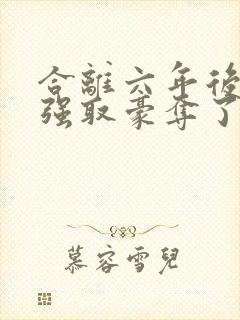 合離六年後
強取豪奪了
慕容雪兒